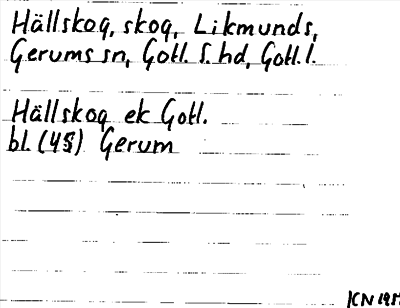 Hällskog, skog, Likmunds,
Gerums sn, Gotl. S. hd, Gotl. l.
Hällskog ek Gotl.
bl. (45) Gerum